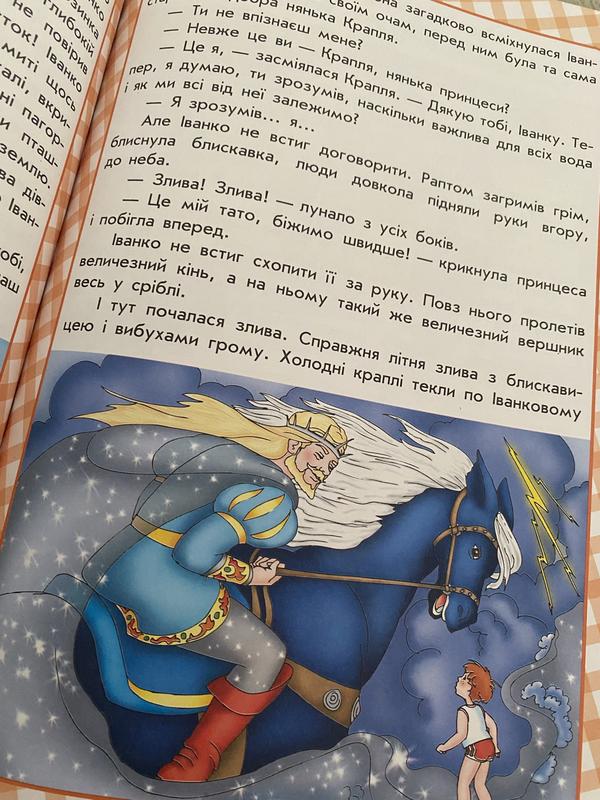 зинка
глибокій
не повірив
ток! Іванко
миті щось
алі, вкри-
ні пагор-
и пташ-
землю.
ва дів-
о Іван-
обі,
аш
она загадково всміхнулася Іван-
своїм очам, перед ним була та сама
добра нянька Крапля.
— Ти не впізнаєш мене?
— Невже це ви — Крапля, нянька принцеси?
— Це я, — засміялася Крапля. — Дякую тобі, Іванку. Те-
пер, я думаю, ти зрозумів, наскільки важлива для всіх вода
і як ми всі від неї залежимо?
— Я зрозумів... я...
Але Іванко не встиг договорити. Раптом загримів грім,
блиснула блискавка, люди довкола підняли руки вгору,
до неба.
— Злива! Злива! — лунало з усіх боків.
— Це мій тато, біжимо швидше! — крикнула принцеса
і побігла вперед.
Іванко не встиг схопити її за руку. Повз нього пролетів
величезний кінь, а на ньому такий же величезний вершник
весь у сріблі.
І тут почалася злива. Справжня літня злива з блискави-
цею і вибухами грому. Холодні краплі текли по Іванковому